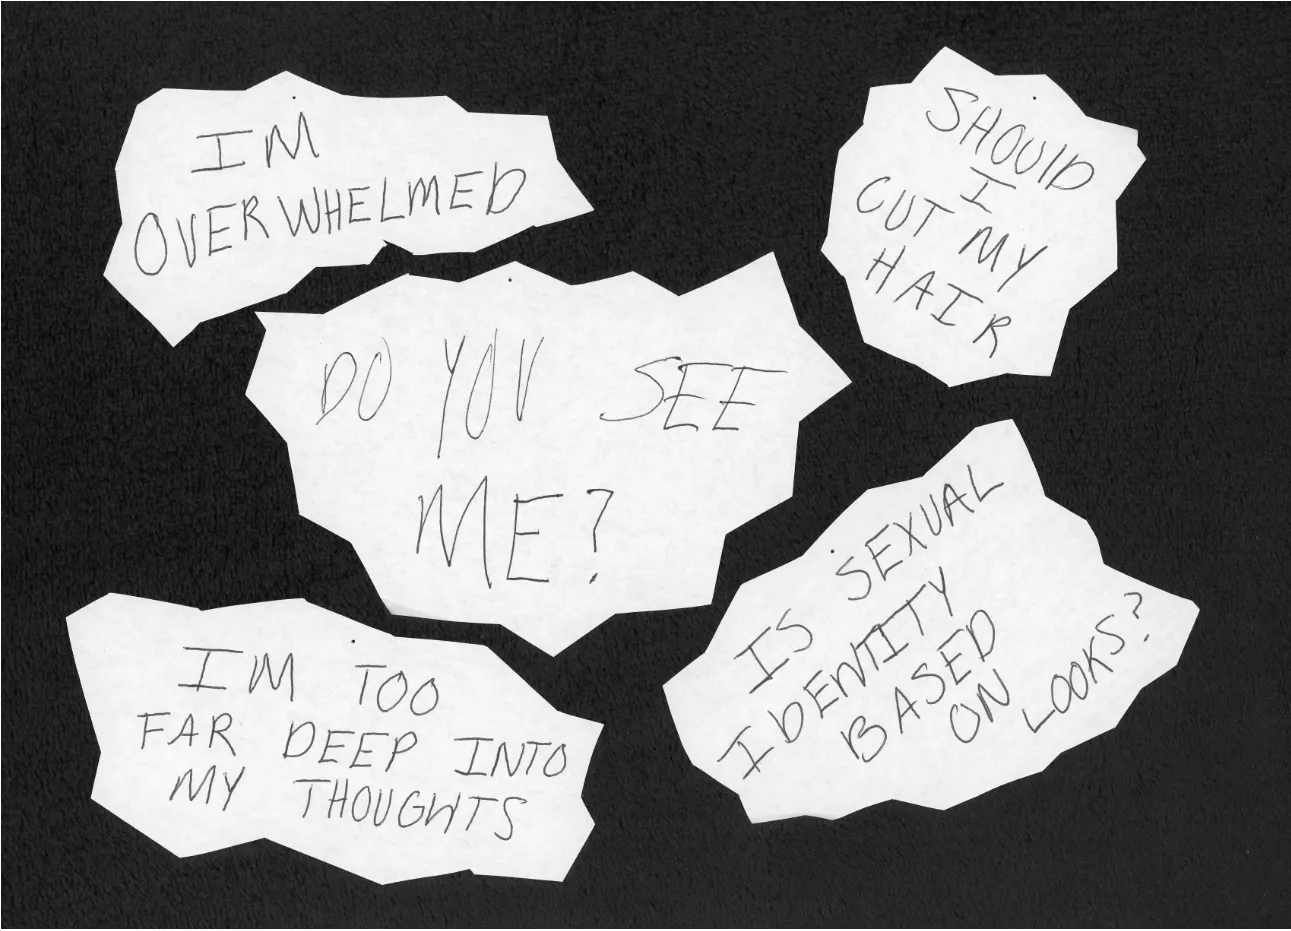 IM
OVERWHELMED
SHOULD
I
CUT MY
HAIR
DO YOU SEE
ME?
IS SEXUAL
IDENTITY
BASED
ON LOOKS?
IM TOO
FAR DEEP INTO
MY THOUGHTS